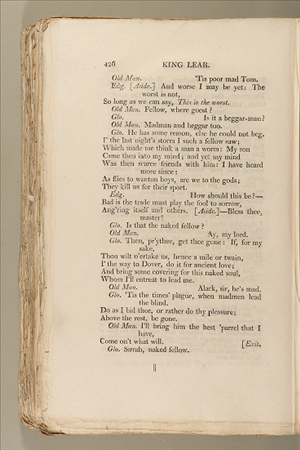 426 KING LEAR.
Old Man. 'Tis poor mad Tom.
Edg. [Aside.] And worse I may be yet: The
worst is not,
So long as we can say, This is the worst.
Old Man. Fellow, where goest?
Glo. Is it a beggar-man?
Old Man. Madman and beggar too.
Glo. He has some reason, else he could not beg.
I' the last night's storm I such a fellow saw;
Which made me think a man a worm: My son
Came then into my mind; and yet my mind
Was then scarce friends with him: I have heard
more since:
As flies to wanton boys, are we to the gods;
They kill us for their sport.
Edg. How should this be?—
Bad is the trade must play the fool to sorrow,
Ang'ring itself and others. [Aside.]—Bless thee,
master!
Glo. Is that the naked fellow?
Old Man. Ay, my lord.
Glo. Then, pr'ythee, get thee gone: If, for my
sake,
Thou wilt o'ertake us, hence a mile or twain,
I' the way to Dover, do it for ancient love;
And bring some covering for this naked soul,
Whom I'll entreat to lead me.
Old Man. Alack, sir, he's mad.
Glo. 'Tis the times' plague, when madmen lead
the blind.
Do as I bid thee, or rather do thy pleasure;
Above the rest, be gone.
Old Man. I'll bring him the best 'parrel that I
have,
Come on't what will. [Exit.
Glo. Sirrah, naked fellow.
||